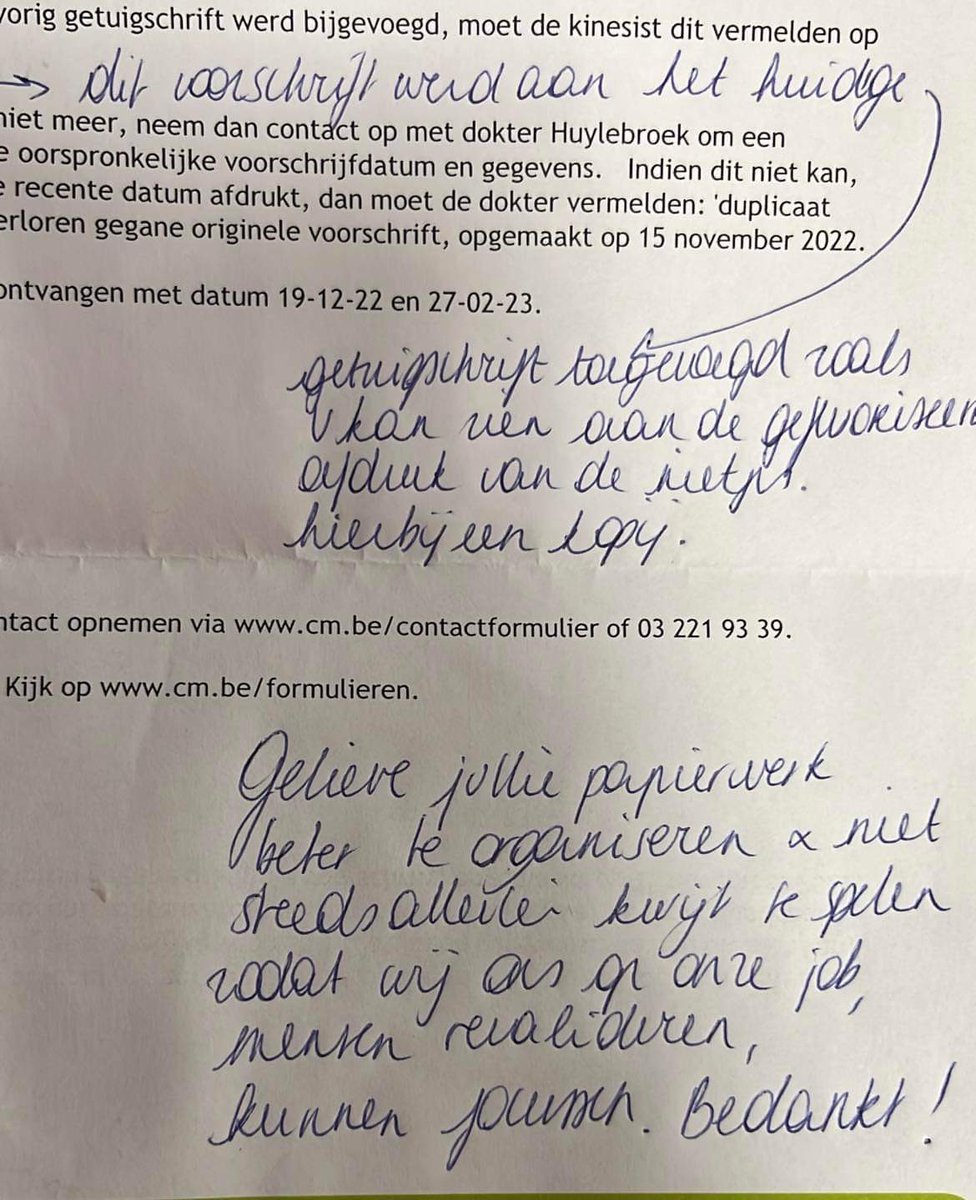 vorig getuigschrift werd bijgevoegd, moet de kinesist dit vermelden op
→ dit voorschrift werd aan het huidige
niet meer, neem dan contact op met dokter Huylebroek om een
e oorspronkelijke voorschrijfdatum en gegevens. Indien dit niet kan,
e recente datum afdrukt, dan moet de dokter vermelden: 'duplicaat
erloren gegane originele voorschrift, opgemaakt op 15 november 2022.
ontvangen met datum 19-12-22 en 27-02-23.
getuigschrift toegevoegd zoals
U kan zien aan de
afdruk van de nietjes.
hierbij een kopy.
ntact opnemen via www.cm.be/contactformulier of 03 221 93 39.
Kijk op www.cm.be/formulieren.
Gelieve jullie papierwerk
beter te organiseren & niet
steeds allerlei kwijt te spelen
zodat wij ons op onze job,
mensen revalideren,
kunnen focussen. Bedankt!